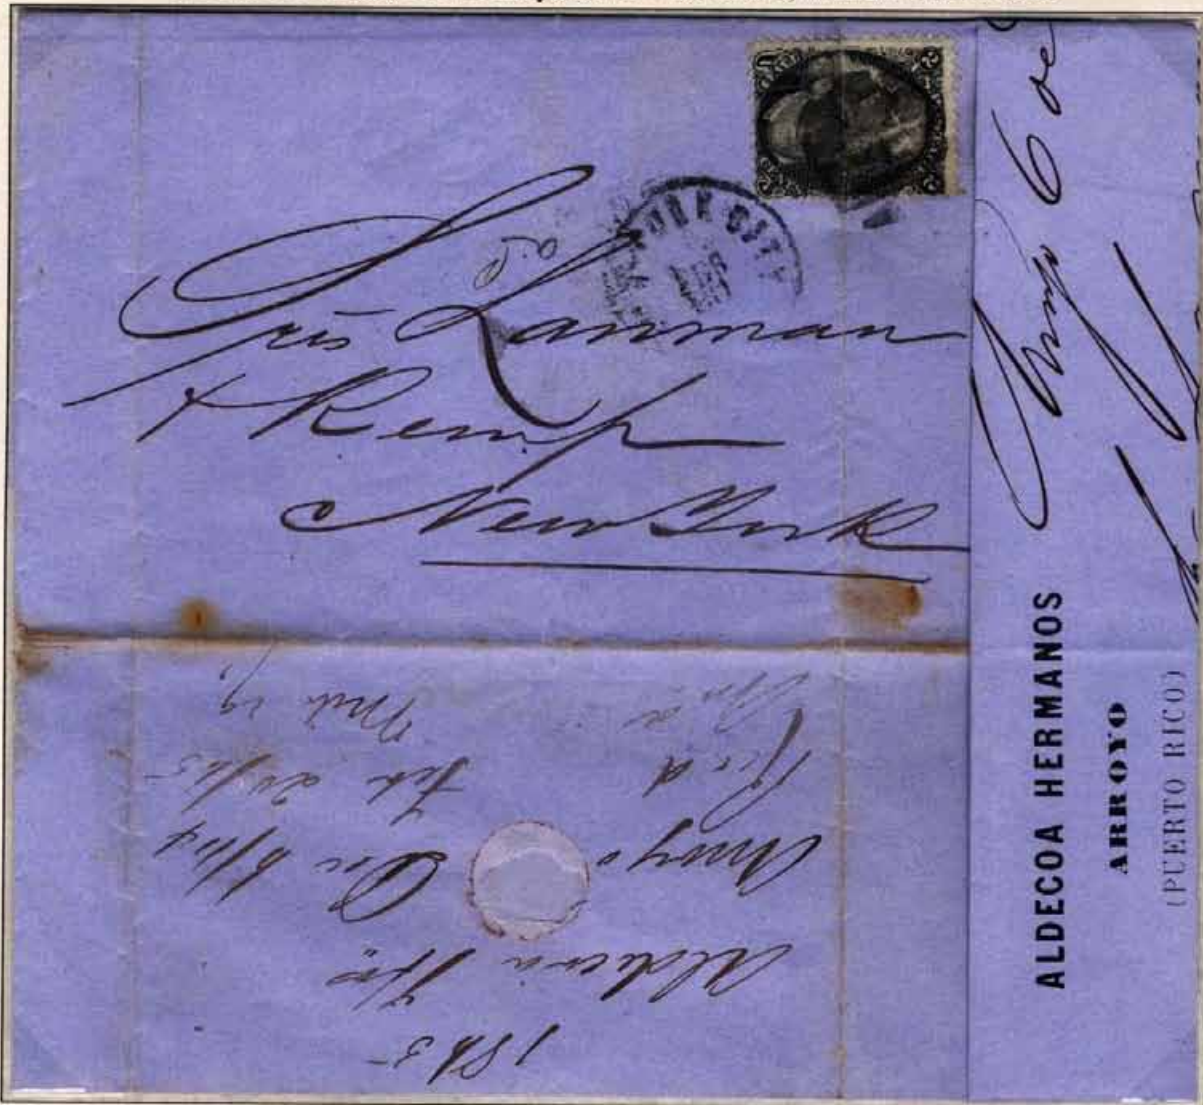 YORK CITY
Srès Lanman
& Kemp
New York
ALDECOA HERMANOS
ARROYO
(PUERTO RICO)
Arroyo 6 de
1865
Aldecoa Hos
Arroyo Dec 6/64
Recd Feb 20/65
Ansd